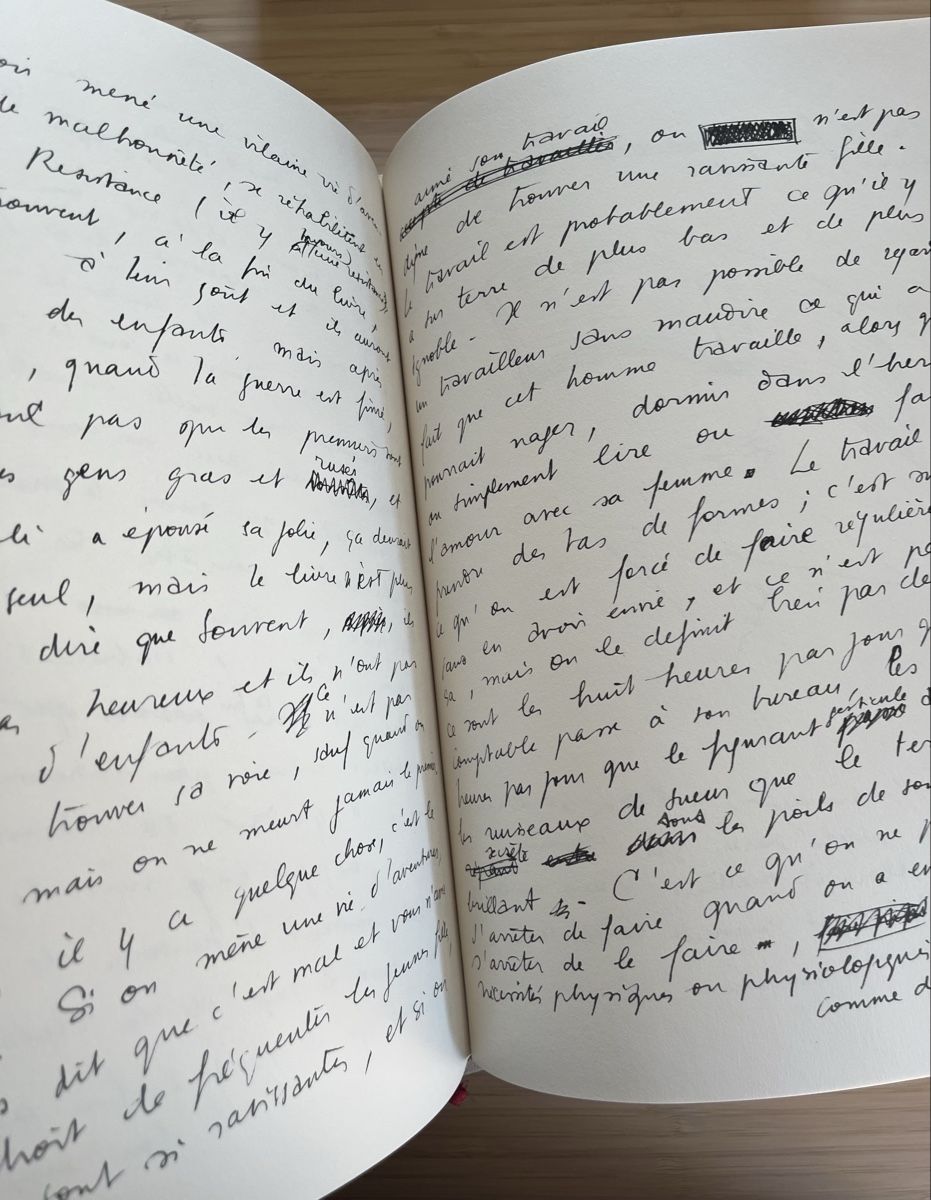 mené une vilaine vie d'avant
malhonnêté, se réhabilitent en
Resistance (il y
à la fin du livre,
à leur goût et ils auront
des enfants, mais après
, quand la guerre est finie,
pas que les premiers sont
gens gras et rusés, et
a épousé sa jolie, ça devrait
seul, mais le livre n'est plus
dire que souvent, ils
heureux et ils n'ont pas
d'enfants. Ce n'est pas
trouver sa voie, sauf quand on
mais on ne meurt jamais le premier
il y a quelque chose, c'est le
Si on mène une vie d'aventures,
dit que c'est mal et vous n'avez
droit de fréquenter les jeunes filles
sont si ravissantes, et si on
aimé son travail
, on n'est pas
digne de trouver une ravissante fille.
le travail est probablement ce qu'il y
a sur terre de plus bas et de plus
ignoble. Il n'est pas possible de regar
un travailleur sans maudire ce qui a
fait que cet homme travaille, alors q
pourrait nager, dormir dans l'her
ou simplement lire ou fai
l'amour avec sa femme. Le travail
prendre des tas de formes ; c'est
ce qu'on est forcé de faire régulière
sans en avoir envie, et ce n'est pa
ça, mais on le définit très
ce sont les huit heures par jour q
comptable passe à son bureau, les
heures par jour que le figurant gesticule
les ruisseaux de sueur que le ter
secrète sous les poils de son
brillant. C'est ce qu'on ne p
s'arrêter de faire quand on a en
s'arrêter de le faire,
nécessités physiques ou physiologiques
comme d